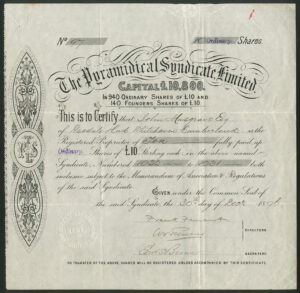 No
Ordinary Shares.
The Pyramidical Syndicate Limited.
CAPITAL £10,800.
In 940 ORDINARY SHARES OF £10 AND
140 FOUNDERS SHARES OF £10.
This is to Certify that John Musgrave Esq
of Whitehaven Cumberland is the
Registered Proprietor of Ten fully paid up
Ordinary Shares of £10 Sterling each in the above named
Syndicate Numbered to both
inclusive subject to the Memorandum of Association & Regulations
of the said Syndicate.
GIVEN under the Common Seal of
the said Syndicate, the day of
DIRECTORS
SECRETARY
NO TRANSFER OF THE ABOVE SHARES WILL BE REGISTERED UNLESS ACCOMPANIED BY THIS CERTIFICATE.